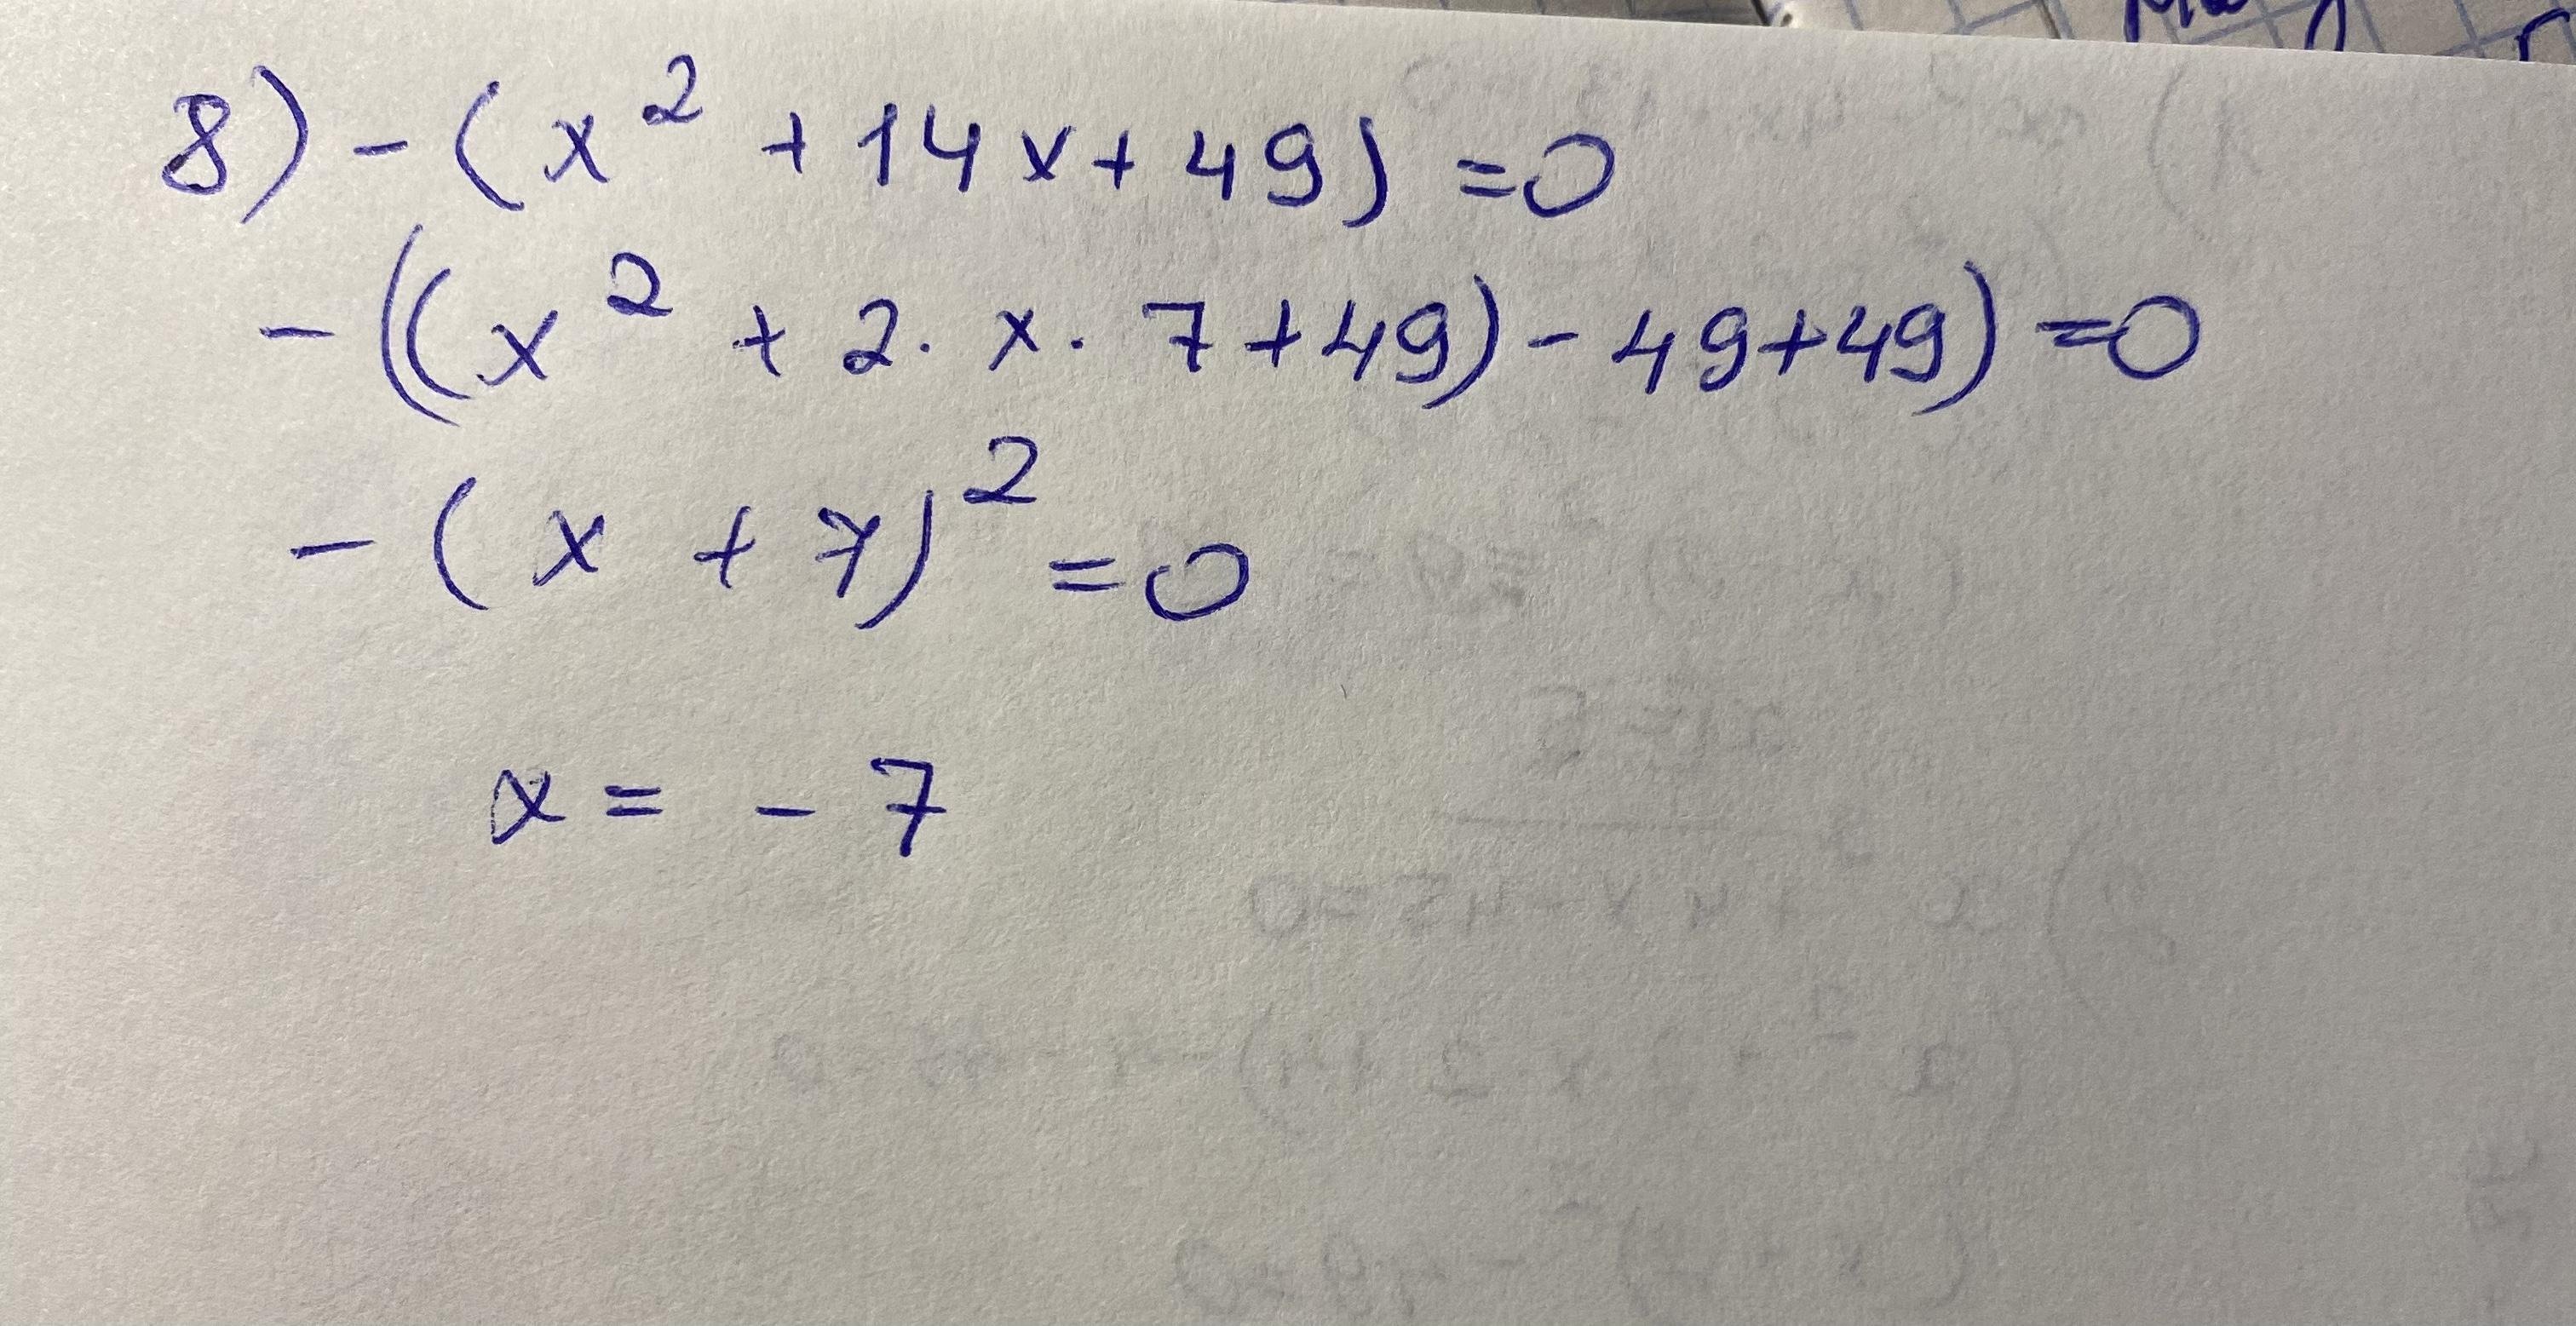 8) - (x² + 14x + 49) = 0
- ((x² + 2 · x · 7 + 49) - 49 + 49) = 0
- (x + 7)² = 0
x = - 7